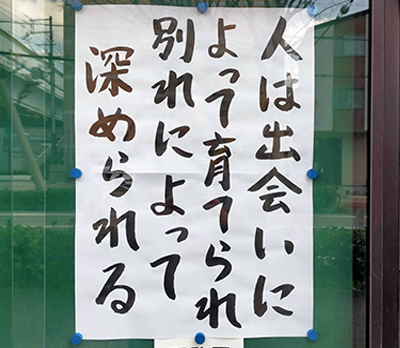 人は出会いに
よって育てられ
別れによって
深められる